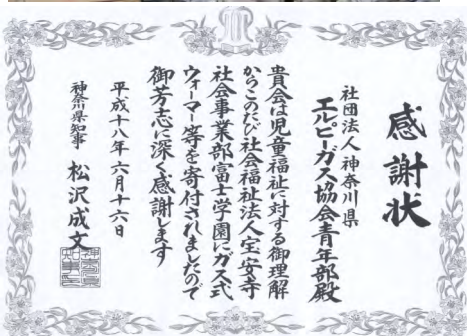 感謝状
社団法人神奈川県
エルピーガス協会青年部殿
貴会は児童福祉に対する御理解
からこのたび社会福祉法人宝安寺
社会事業部富士学園にガス式
ウォーマー等を寄付されましたので
御芳志に深く感謝します
平成十八年六月十六日
神奈川県知事 松沢成文